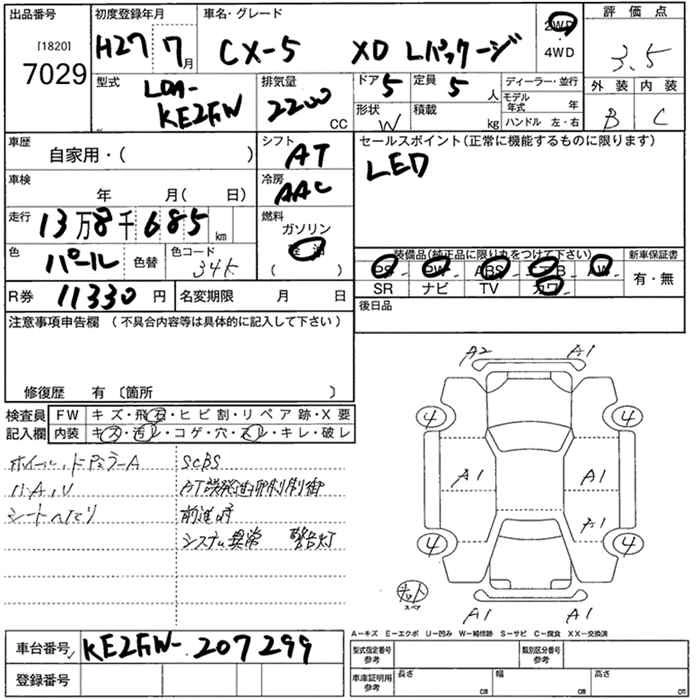 出品番号
[1820]
7029
初度登録年月
H27 7月
車名・グレード
CX-5 XD Lパッケージ
2WD
4WD
評価点
3.5
外装 内装
B C
型式
LDA-
KE2FW
排気量
2200
CC
ドア 5
定員 5 人
形状 W
積載 kg
ディーラー・並行
モデル年式 年
ハンドル 左・右
車歴
自家用・( )
シフト
AT
セールスポイント(正常に機能するものに限ります)
LED
車検
年 月( 日)
冷房
AAC
走行
13万8千685km
燃料
ガソリン
軽油
( )
色
パール
色替
色コード
34K
装備品(純正品に限り丸をつけて下さい)
PS PW ABS エアB AW
SR ナビ TV カワ
新車保証書
有・無
R券 11330 円
名変期限 月 日
後日品
注意事項申告欄 (不具合内容等は具体的に記入して下さい)
修復歴 有 〔箇所 〕
検査員
記入欄
FW キズ・飛石・ヒビ割・リペア跡・X要
内装 キズ・汚レ・コゲ・穴・スレ・キレ・破レ
SCBS
AT誤発進抑制制御
シートヘタリ
前進時
システム異常 警告灯
A2 A1
4 4
A1 A1
A1
4 4
A1 A1
スペア
A−キズ E−エクボ U−凹み W−補修跡 S−サビ C−腐食 XX−交換済
車台番号 KE2FW-207299
登録番号
型式指定番号
参考
類別区分番号
参考
車庫証明用
参考
長さ cm
幅 cm
高さ cm